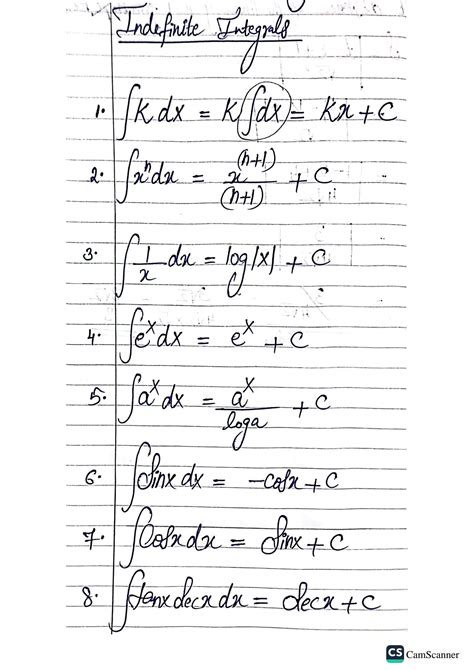 Indefinite Integrals
1. ∫K dx = K∫dx = Kx + C
2. ∫xⁿdx = x^(n+1)/(n+1) + C
3. ∫1/x dx = log|x| + C
4. ∫eˣdx = eˣ + C
5. ∫aˣdx = aˣ/loga + C
6. ∫Sinx dx = -cosx + C
7. ∫Cosx dx = Sinx + C
8. ∫tanx secx dx = secx + C
CS CamScanner